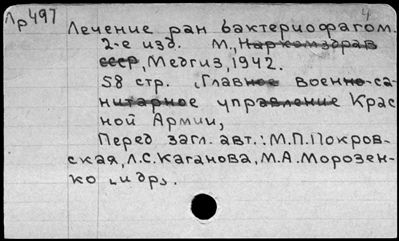 Лр497
4
Лечение ран бактериофагом.
2-е изд. М., Наркомздрав
СССР, Медгиз, 1942.
58 стр. (Главное военно-са-
нитарное управление Крас
ной Армии,
Перед загл. авт.: М.П. Покров-
ская, Л.С. Каганова, М.А. Морозен-
ко (и др).